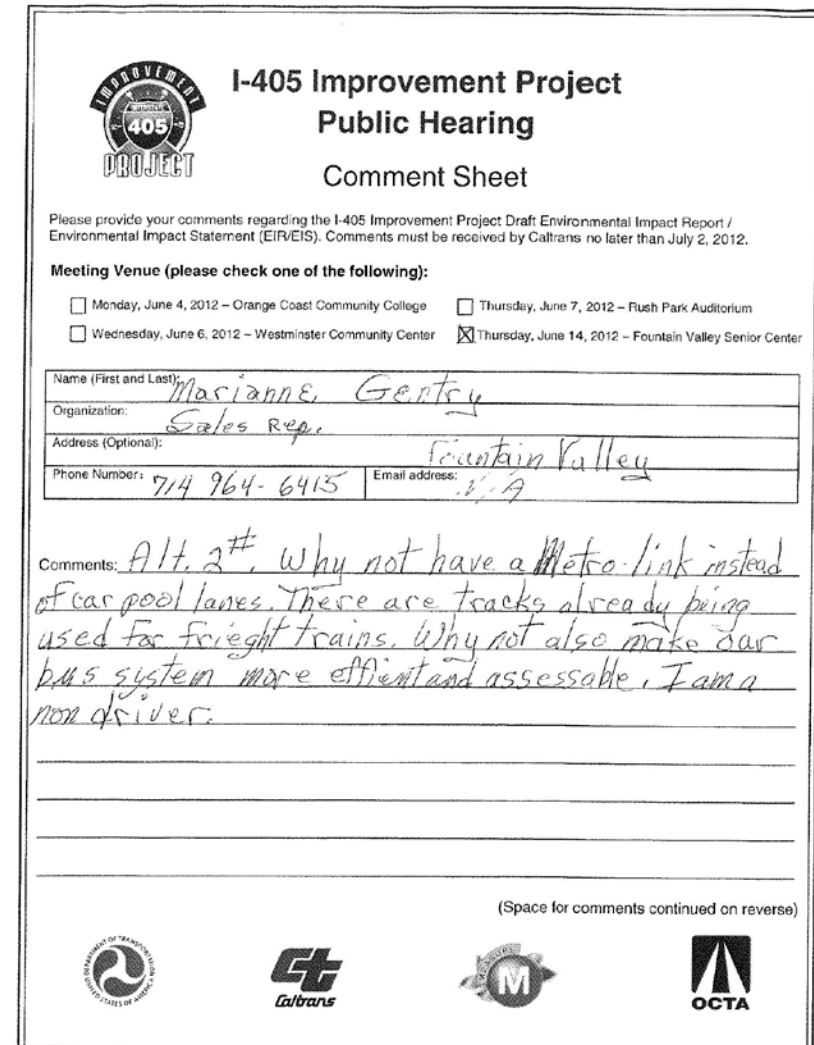 IMPROVEMENT
405
PROJECT
I-405 Improvement Project
Public Hearing
Comment Sheet
Please provide your comments regarding the I-405 Improvement Project Draft Environmental Impact Report /
Environmental Impact Statement (EIR/EIS). Comments must be received by Caltrans no later than July 2, 2012.
Meeting Venue (please check one of the following):
Monday, June 4, 2012 – Orange Coast Community College
Thursday, June 7, 2012 – Rush Park Auditorium
Wednesday, June 6, 2012 – Westminster Community Center
Thursday, June 14, 2012 – Fountain Valley Senior Center
Name (First and Last): Marianne Gentry
Organization: Sales Rep.
Address (Optional): Fountain Valley
Phone Number: 714 964-6415 Email address: N/A
Comments: Alt. 2#. Why not have a Metro-link instead
of car pool lanes. There are tracks already being
used for frieght trains. Why not also make our
bus system more effient and assessable. I am a
non driver.
(Space for comments continued on reverse)
DEPARTMENT OF TRANSPORTATION
UNITED STATES OF AMERICA
Caltrans
MEASURE
M
OCTA